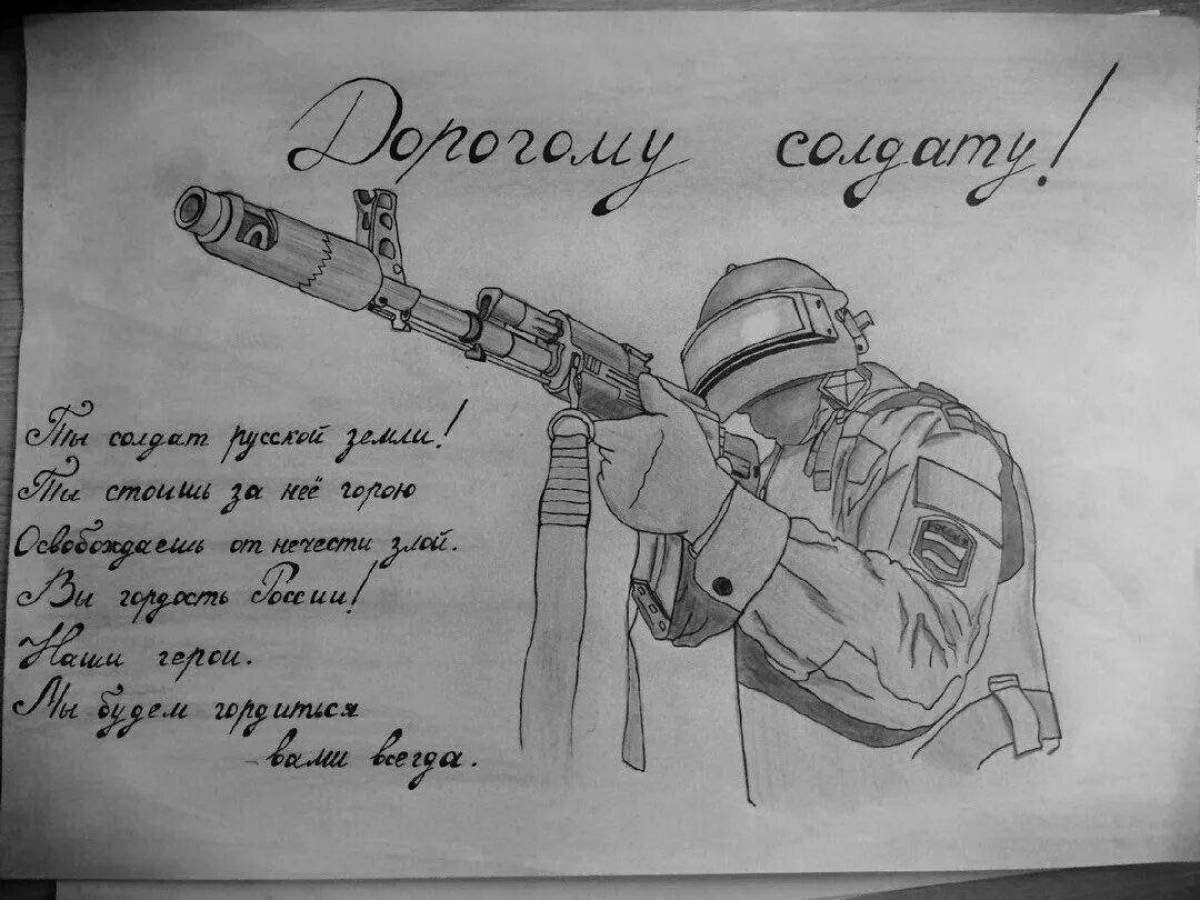 Дорогому солдату!
Ты солдат русской земли!
Ты стоишь за неё горою
Освобождаешь от нечести злой.
Вы гордость России!
Наши герои.
Мы будем гордиться
вами всегда.